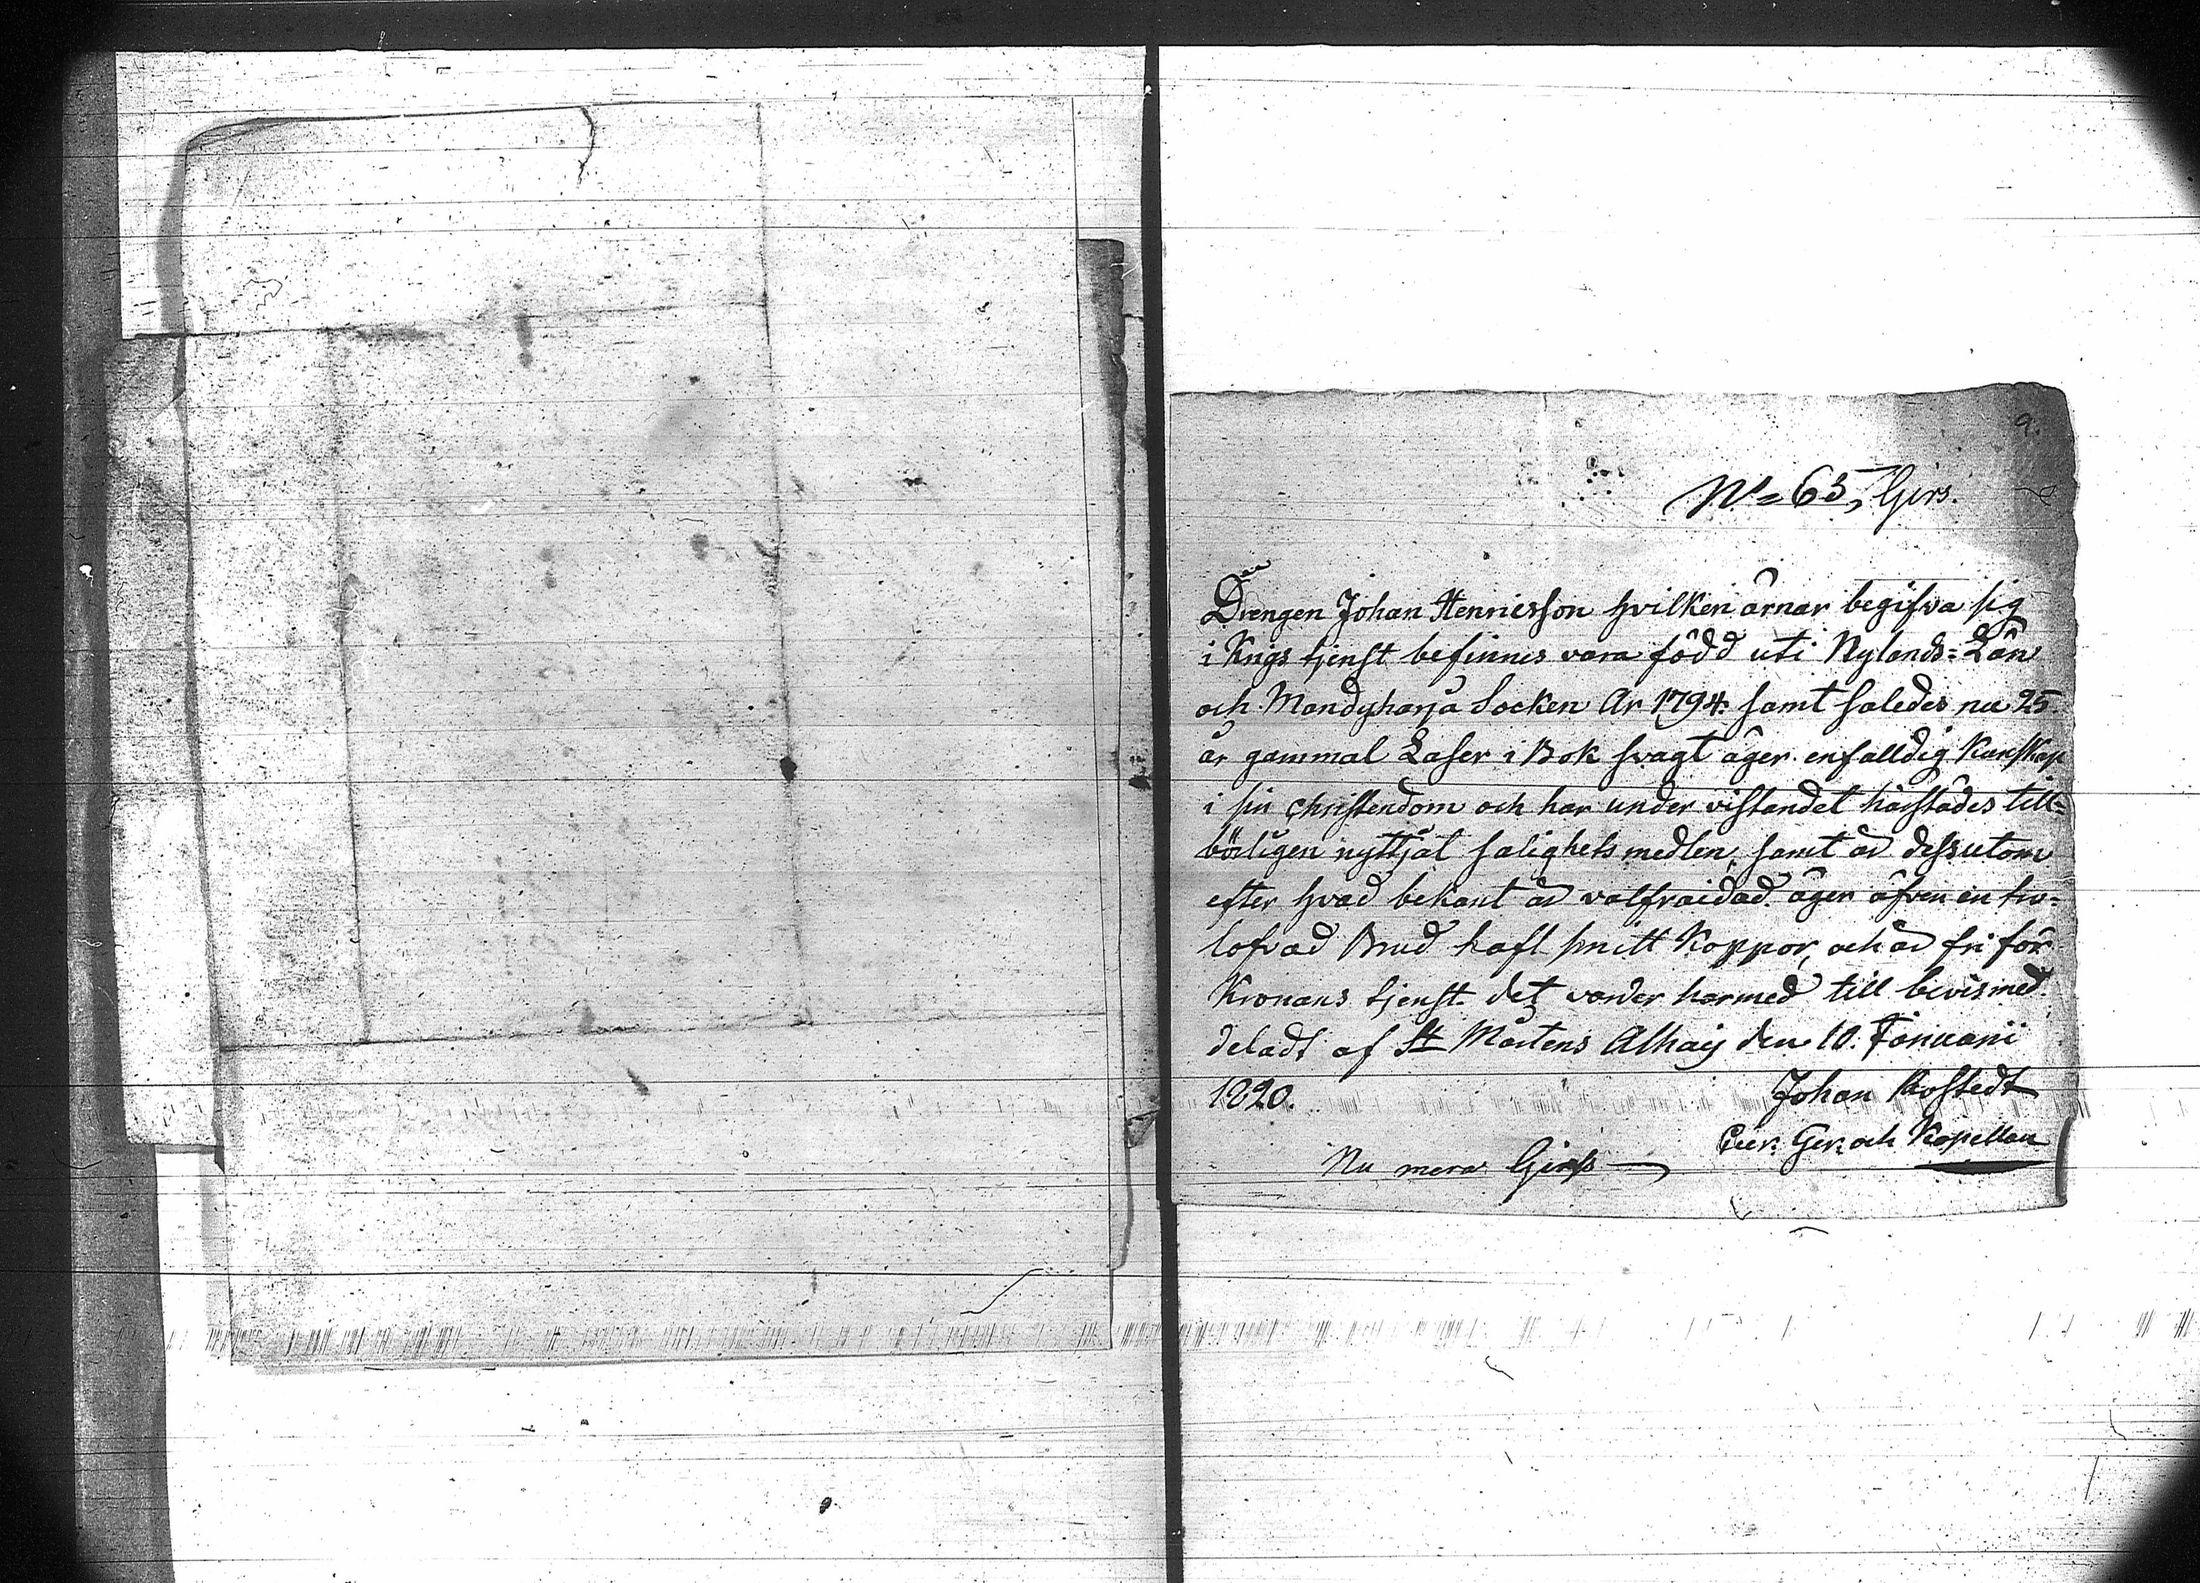 9.
No 63, Girs.
Drengen Johan Henricsson hvilken ärnar begifva sig
i Krigs tjenst befinnes vara född uti Nylands=Län
och Mändyharja Socken År 1794: samt således nu 25
år gammal Läser i Bok svagt äger enfalldig Kunskap
i sin christendom och har under vistandet härstädes till=
börligen nyttjat salighets medlen, samt är dessutom
efter hvad bekant är välfraidad. äger äfven en tro=
lofvad Brud haft smitt Koppor, och är fri för
Kronans tjenst. det varder härmed till bevis med=
deladt af St Mårtens den 10. Januarii
1820. Johan
och Kapellan
Nu mera Girss